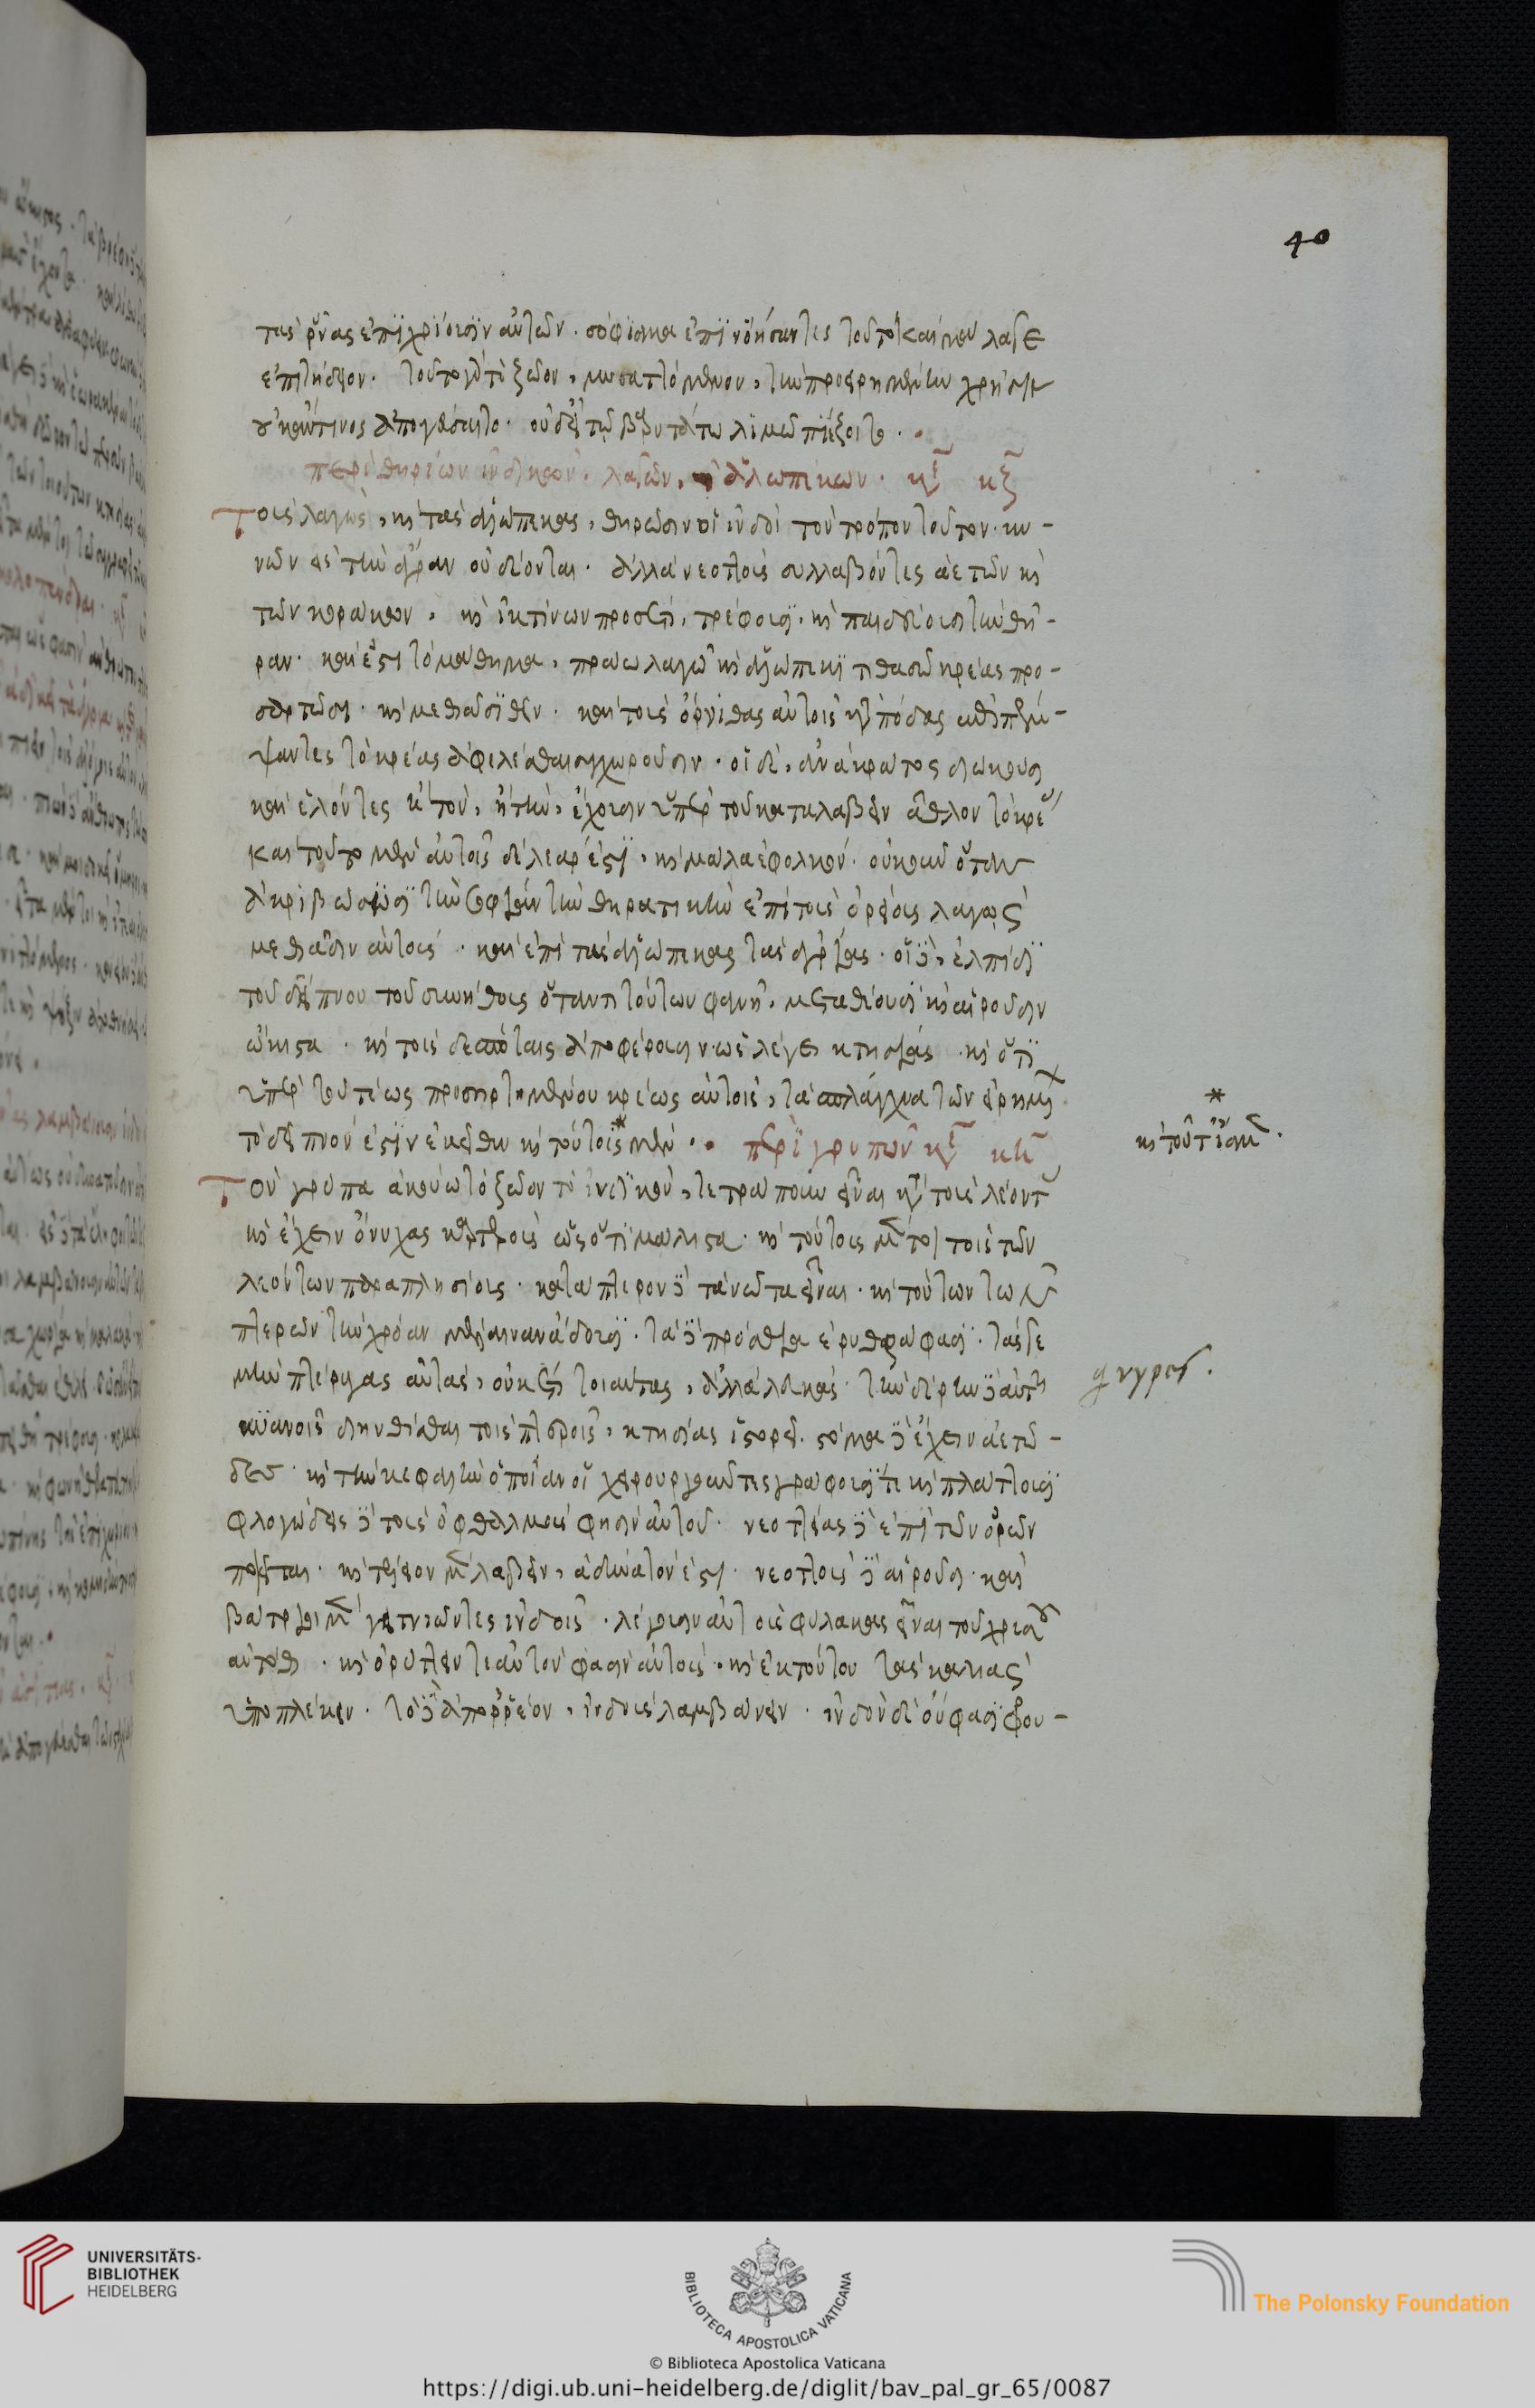 40
τὰς ῥῖνας ἐπιχρίουσιν αὐτῶν· σόφισμα ἐπινοήσαντες τοῦτο καὶ μάλα γε
ἐπιτήδειον. τοῦτο γάρ τι ζῶον, μυσαττόμενον, τὴν προειρημένην χρῆσιν
οὐκ ἄν τινος ἀπογεύσαιτο· οὐδ' εἰ τῷ βαρυτάτω λιμῶ πιέζοιτο.
περὶ θηρίων ἰνδικῶν. λαγῶν, καὶ ἀλωπέκων. κεφ κζ
Τοὺς λαγὼς, καὶ τὰς ἀλώπεκας, θηρῶσιν οἱ ἰνδοὶ τοῦτρόπον τοῦτον. κυ-
νῶν εἰς τὴν ἄγραν οὐ δέονται. ἀλλὰ νεοττοὺς συλλαβόντες ἀετῶν καὶ
τῶν κοράκων, καὶ ἰκτίνων προσέτι, τρέφουσι, καὶ παιδεύουσι τὴν θή-
ραν. καὶ ἔστι τὸ μάθημα, πράω λαγῶ καὶ ἀλώπεκι τιθασῶ κρέας προ-
σαρτῶσι. καὶ μεθιᾶσι θεῖν. καὶ τοὺς ὄρνιθας αὐτοῖς κατὰ πόδας ἐπιπέμ-
ψαντες τὸ κρέας ἀφελέσθαι συγχωροῦσιν. οἱ δὲ, ἀνάκρατος διώκουσι
καὶ ἑλόντες ἢ τὸν, ἢ τὴν, ἔχουσιν ὑπὲρ τοῦ καταλαβεῖν ἆθλον τὸ κρέας
καὶ τοῦτο μὲν αὐτοῖς δέλεάρ ἐστι, καὶ μάλα ἐφολκόν. οὐκοῦν ὅταν
ἀκριβώσωσι τὴν σοφίαν τὴν θηρατικὴν ἐπὶ τοὺς ὀρείους λαγὼς
μεθιᾶσιν αὐτοὺς. καὶ ἐπὶ τὰς ἀλώπεκας τὰς ἀγρίας. οἱ δὲ, ἐλπίδι
τοῦ δείπνου τοῦ συνήθους ὅταν τι τούτων φανῆ, μεταθέουσι καὶ αἱροῦσιν
ὤκιστα. καὶ τοῖς δεσπόταις ἀποφέρουσιν. ὡς λέγει κτησίας. καὶ ὅτι
ὑπὲρ τοῦ τέως προσηρτημένου κρέως αὐτοῖς, τὰ σπλάγχνα τῶν εἰρημέν
τὸ δεῖπνόν ἐστιν ἐκεῖθεν καὶ τούτοις* μὲν. περὶ γρυπῶν κεφ κη
* καὶ τοῦτ ἴσμεν.
Τὸν γρύπα ἀκούω τὸ ζῶον τὸ ἰνδικὸν, τετράπουν εἶναι κατὰ τοὺς λέοντας
καὶ ἔχειν ὄνυχας καρτεροὺς ὡς ὅτι μάλιστα. καὶ τούτους μέντοι τοῖς τῶν
λεόντων παραπλησίους. κατάπτερον δὲ τὰ νῶτα εἶναι. καὶ τούτων τῶν
πτερῶν τὴν χρόαν μέλαιναν ἄδουσι. τὰ δὲ πρόσθια ἐρυθρά φασι. τάς γε
μὴν πτέρυγας αὐτὰς, οὐκέτι τοιαύτας, ἀλλὰ λευκάς. τὴν δέρην δὲ αὐτῶ
κυανοῖς διηνθίσθαι τοῖς πτεροῖς, κτησίας ἱστορεῖ. στόμα δὲ ἔχειν ἀετῶ-
δες. καὶ τὴν κεφαλὴν ὁποῖαν οἱ χειρουργοῦντες γράφουσί τε καὶ πλάττουσι
φλογώδεις δὲ τοὺς ὀφθαλμούς φησιν αὐτοῦ. νεοττείας δὲ ἐπὶ τῶν ὀρῶν
ποιεῖται. καὶ τέλειον μὲν λαβεῖν, ἀδύνατόν ἐστι. νεοττοὺς δὲ αἱροῦσι. καὶ
βάτριοι μὲν γειτνιῶντες ἰνδοῖς. λέγουσιν αὐτοὺς φύλακας εἶναι τοῦ χρυσοῦ
αὐτόθι. καὶ ὀρύττειν τε αὐτόν φασιν αὐτοὺς. καὶ ἐκ τούτου τὰς καλιὰς
ὑποπλέκειν. τὸ δὲ ἀπορρέον, ἰνδοὺς λαμβάνειν. ἰνδοὶ δὲ οὔ φασι φρου-
gryпes.
UNIVERSITÄTS-
BIBLIOTHEK
HEIDELBERG
BIBLIOTECA APOSTOLICA VATICANA
The Polonsky Foundation
© Biblioteca Apostolica Vaticana
https://digi.ub.uni-heidelberg.de/diglit/bav_pal_gr_65/0087